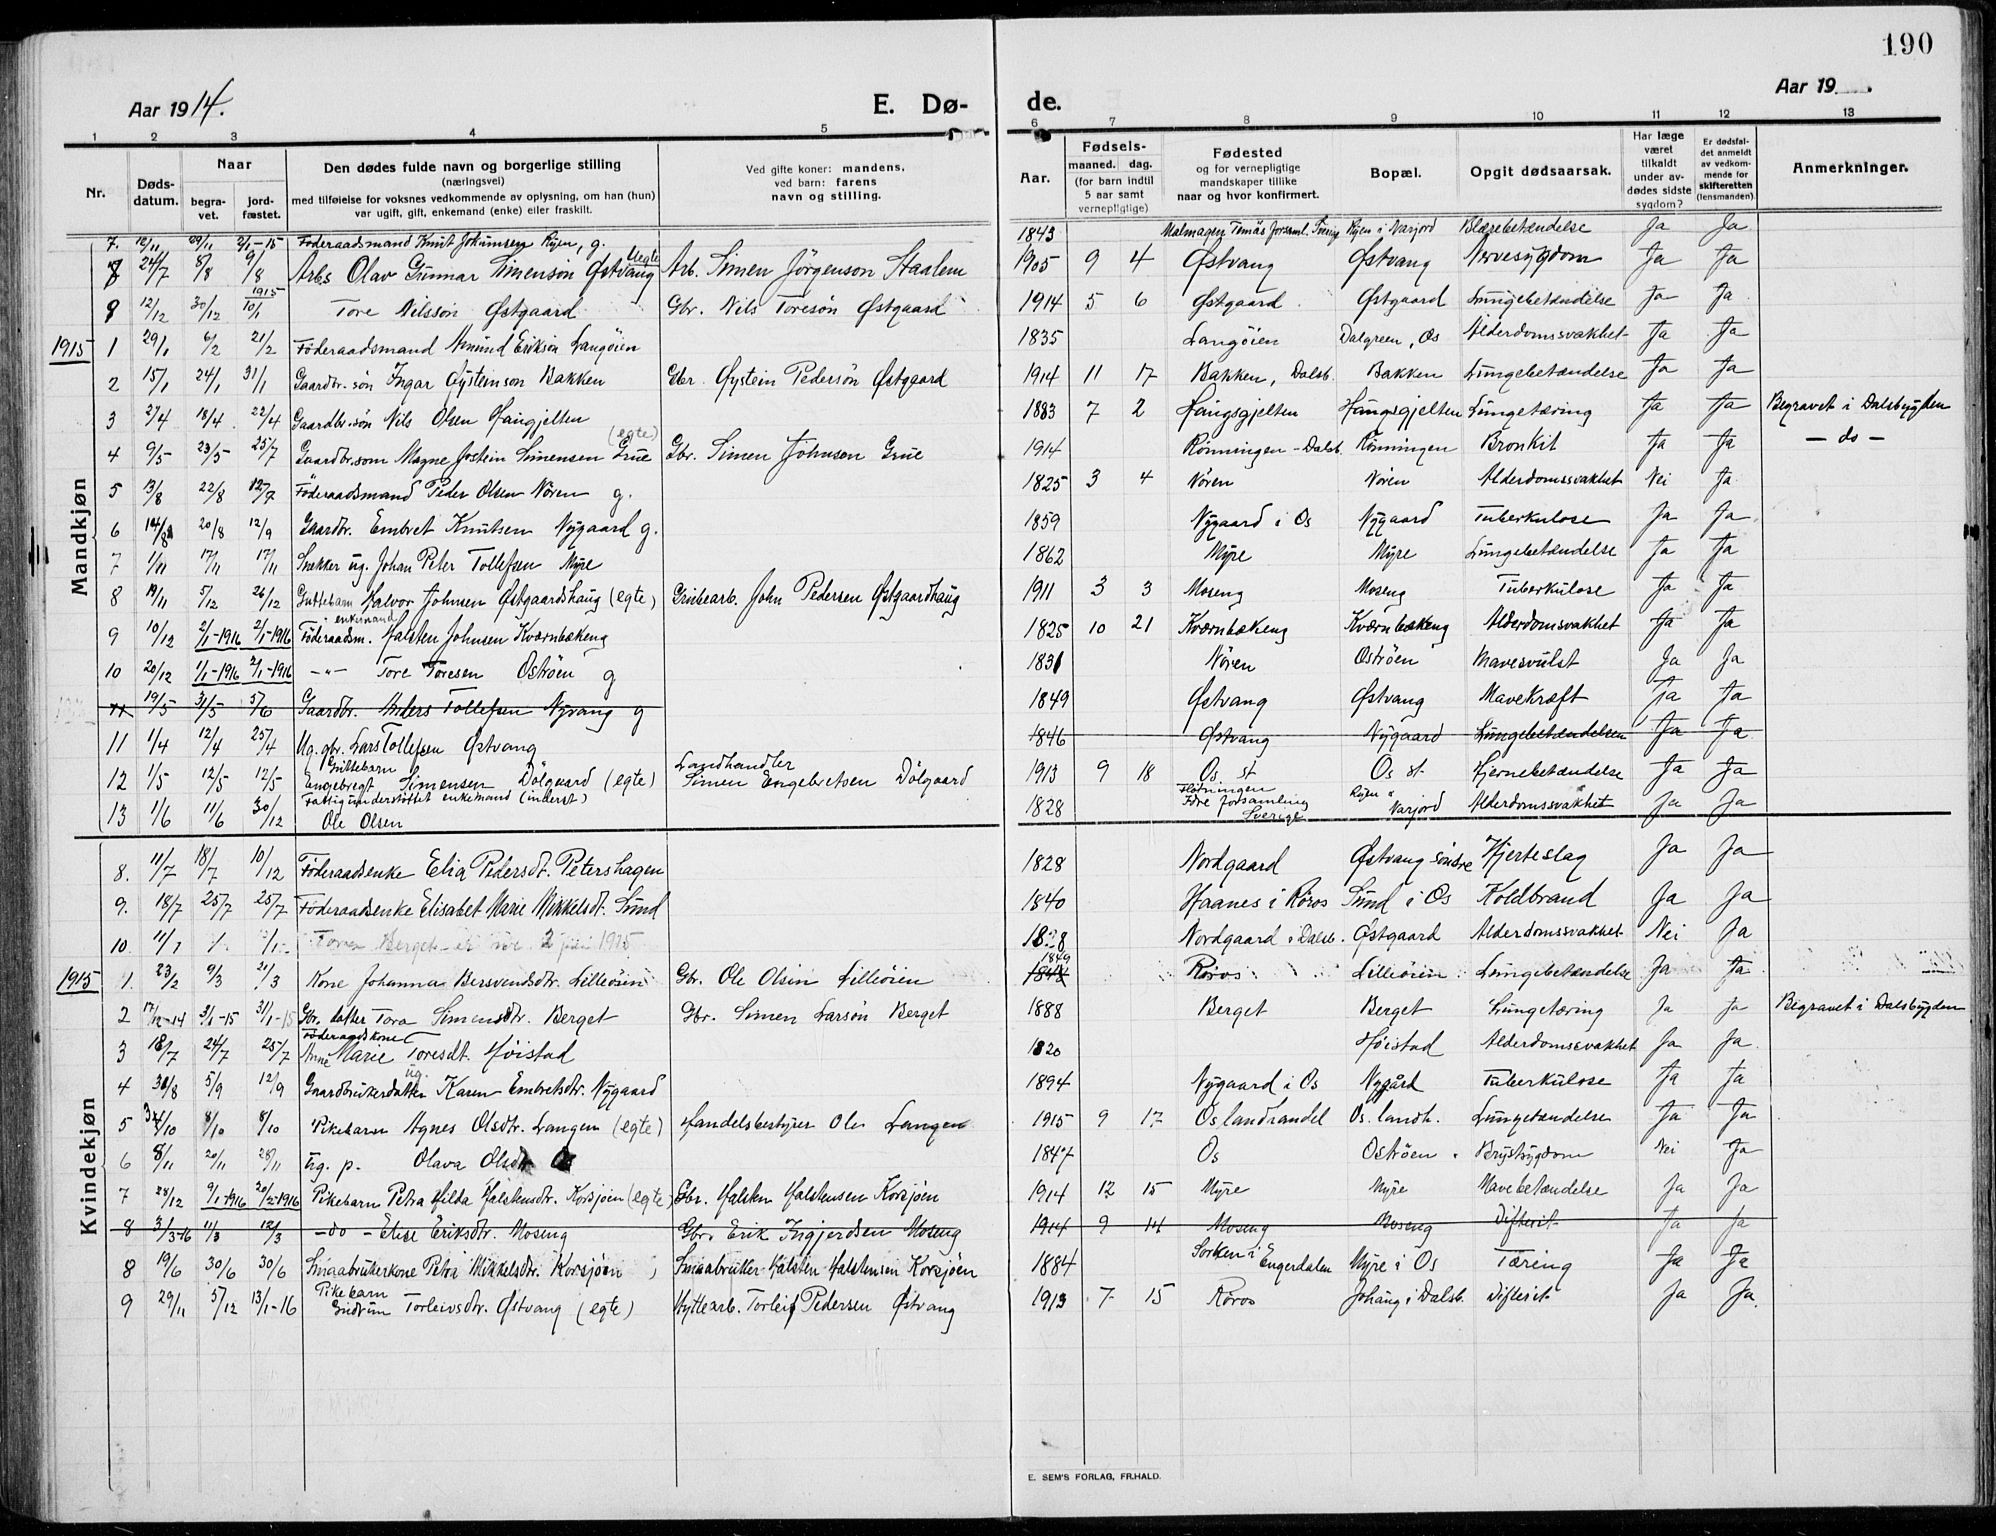 190
Aar 1914.
E. Dø-
de.
Aar 19
1 2 3 4 5 6 7 8 9 10 11 12 13
Nr.
Døds-
datum.
Naar
begra-
vet.
jord-
fæstet.
Den dødes fulde navn og borgerlige stilling
(næringsvei)
med tilføielse for voksnes vedkommende av oplysning, om han (hun)
var ugift, gift, enkemand (enke) eller fraskilt.
Ved gifte koner: mandens,
ved barn: farens
navn og stilling.
Aar.
Fødsels-
maaned. dag.
(for barn indtil
5 aar samt
vernepligtige)
Fødested
og for vernepligtige
mandskaper tillike
naar og hvor konfirmert.
Bopæl.
Opgit dødsaarsak.
Har læge
været
tilkaldt
under av-
dødes sidste
sygdom?
Er dødsfal-
det anmeldt
av vedkom-
mende for
skifteretten
(lensmanden).
Anmerkninger.
Mandkjøn
7. 12/11 29/11 2/1-15 Föderaadsmand Knut Johunsen Ryen, g. 1843 Malmagen Tenäs Forsaml. Sverig Ryen i Narjord Blærebetændelse Ja Ja
8 24/7 8/8 9/8 Arbs Olav Gunnar Simensön Østvang Uegte Arb. Simen Jörgenson Staalem 1905 9 4 Østvang Østvang Nervesygdom Ja Ja
9 12/12 30/12 1915 10/1 Tore Nilssön Østgaard Gbr. Nils Toresön Østgaard 1914 5 6 Østgaard Østgaard Lungebetændelse Ja Ja
1915 1 29/1 6/2 21/2 Föderaadsmand Amund Eriksön Langöien 1835 Langöien Dalgreen, Os Alderdomssvakhet Ja Ja
2 15/1 24/1 31/1 Gaardbr. sön Ingar Øysteinson Bakken Gbr. Øystein Pedersön Østgaard 1914 11 17 Bakken, Dalsb. Bakken Lungebetændelse Ja Ja
3 27/4 18/4 22/4 Gaardbr. sön Nils Olsen Haugjelten 1883 7 2 Haugsgjelten Haugsgjelten Lungetæring Ja Ja Begravet i Dalsbygden
4 9/5 23/5 25/7 Gaardbr. som Magne Jostein Simensen Grue (egte) Gbr. Simen Johnson Grue 1914 Rönningen - Dalsb. Rönningen Bronkit Ja Ja - do -
5 13/8 22/8 12/7 Föderaadsmand Peder Olsen Nören g. 1825 3 4 Nören Nören Alderdomssvakhet Nei Ja
6 14/8 20/8 12/9 Gaardbr. Embret Knutsen Nygaard g. 1859 Nygaard i Os Nygaard Tuberkulose Ja Ja
7 1/11 17/11 17/11 Snekker ug. Johan Peter Tollefsen Myre 1862 Myre Myre Lungebetændelse Ja Ja
8 19/11 5/12 26/12 Guttebarn Halvor Johnsen Østgaardshaug (egte) Grubearb. John Pedersen Østgaardhaug 1911 3 3 Moseng Moseng Tuberkulose Ja Ja
9 10/12 2/1-1916 2/1-1916 Föderaadsm. enkemand Halsten Johnsen Kværnbækeng 1825 10 21 Kværnbækeng Kværnbækeng Alderdomsvakhet Ja Ja
10 20/12 1/1-1916 2/1-1916 -"- Tore Toresen Oströen g 1831 Nören Oströen Mavesvulst Ja Ja
11 19/5 31/5 5/6 Gaardbr. Anders Tollefsen Nyvang g 1849 Østvang Østvang Mavekræft Ja Ja
11 1/4 12/4 25/4 Ug. gbr. Lars Tollefsen Østvang 1846 Østvang Nygaard Lungebetændelsen Ja Ja
12 1/5 12/5 12/5 Guttebarn Engebregt Simensen Dölgaard (egte) Landhandler Simen Engebretsen Dölgaard 1913 9 18 Os st Os st. Hjernebetændelse Ja Ja
13 1/6 11/6 30/12 Fattigunderstöttet enkemand (inderst) Ole Olsen 1828 Idre forsamling Sverige Ryen i Narjord Alderdomssvakhet Ja Ja
Kvindekjøn
8. 11/7 18/7 10/12 Föderaadsenke Elia Pedersdt. Petershagen 1828 Nordgaard Østvang söndre Hjerteslag Ja Ja
9. 18/7 25/7 25/7 Föderaadsenke Elisabet Marie Mikkelsdt. Sund 1840 Haanes i Röros Sund i Os Koldbrand Ja Ja
10. 11/1 Berget 1915 1828 Nordgaard i Dalsb. Østgaard Alderdomssvakhet Nei Ja
1915 1. 23/2 9/3 21/3 Kone Johanna Bersvendsdtr. Lilleöien Gbr. Ole Olsen Lilleöien 1849 Röros Lilleöien Lungebetændelse Ja Ja
2 17/12-14 3/1-15 31/1-15 Gbr. datter Tora Simensdtr. Berget Gbr. Simen Larsön Berget 1888 Berget Berget Lungetæring Ja Ja Begravet i Dalsbygden
3 18/7 24/7 25/7 Föderaadskone Anne Marie Toresdt. Höistad 1820 Höistad Alderdomssvakhet Ja Ja
4 31/8 5/9 12/9 Gaardbrukerdatter ug. Karen Embretsdtr. Nygaard 1894 Nygaard i Os Nygård Tuberkulose Ja Ja
5 8/10 8/10 Pikebarn Agnes Olsdtr. Langen (egte) Handelsbestyrer Ole Langen 1915 9 17 Os landhandel Os. landh. Lungebetændelse Ja Ja
6 8/11 20/11 28/11 Ug. p. Olava Olsdtr Os 1847 Os Oströen Brystsygdom Nei Ja
7 28/12 9/1-1916 20/2-1916 Pikebarn Petra Hilda Halstensdtr. Korsjöen (egte) Gbr. Halsten Halstensen Korsjöen 1914 12 15 Myre Myre Mavebetændelse Ja Ja
8 3/3-16 11/3 12/3 - do - Elise Eriksdtr. Moseng Gbr. Erik Ingjerdsen Moseng 1914 9 14 Moseng Moseng Difterit Ja Ja
8 19/6 30/6 30/6 Smaabrukerkone Petra Mikkelsdtr. Korsjöen Smaabruker Halsten Halstensen Korsjöen 1884 Sorken i Engerdalen Myre i Os Tæring Ja Ja
9 29/11 5/12 13/1-16 Pikebarn Gudrun Torleivsdtr. Østvang (egte) Hyttearb. Torleif Pedersen Østvang 1913 7 15 Röros Johaug i Dalsb. Difterit Ja Ja.
E. SEM'S FORLAG, FR.HALD.